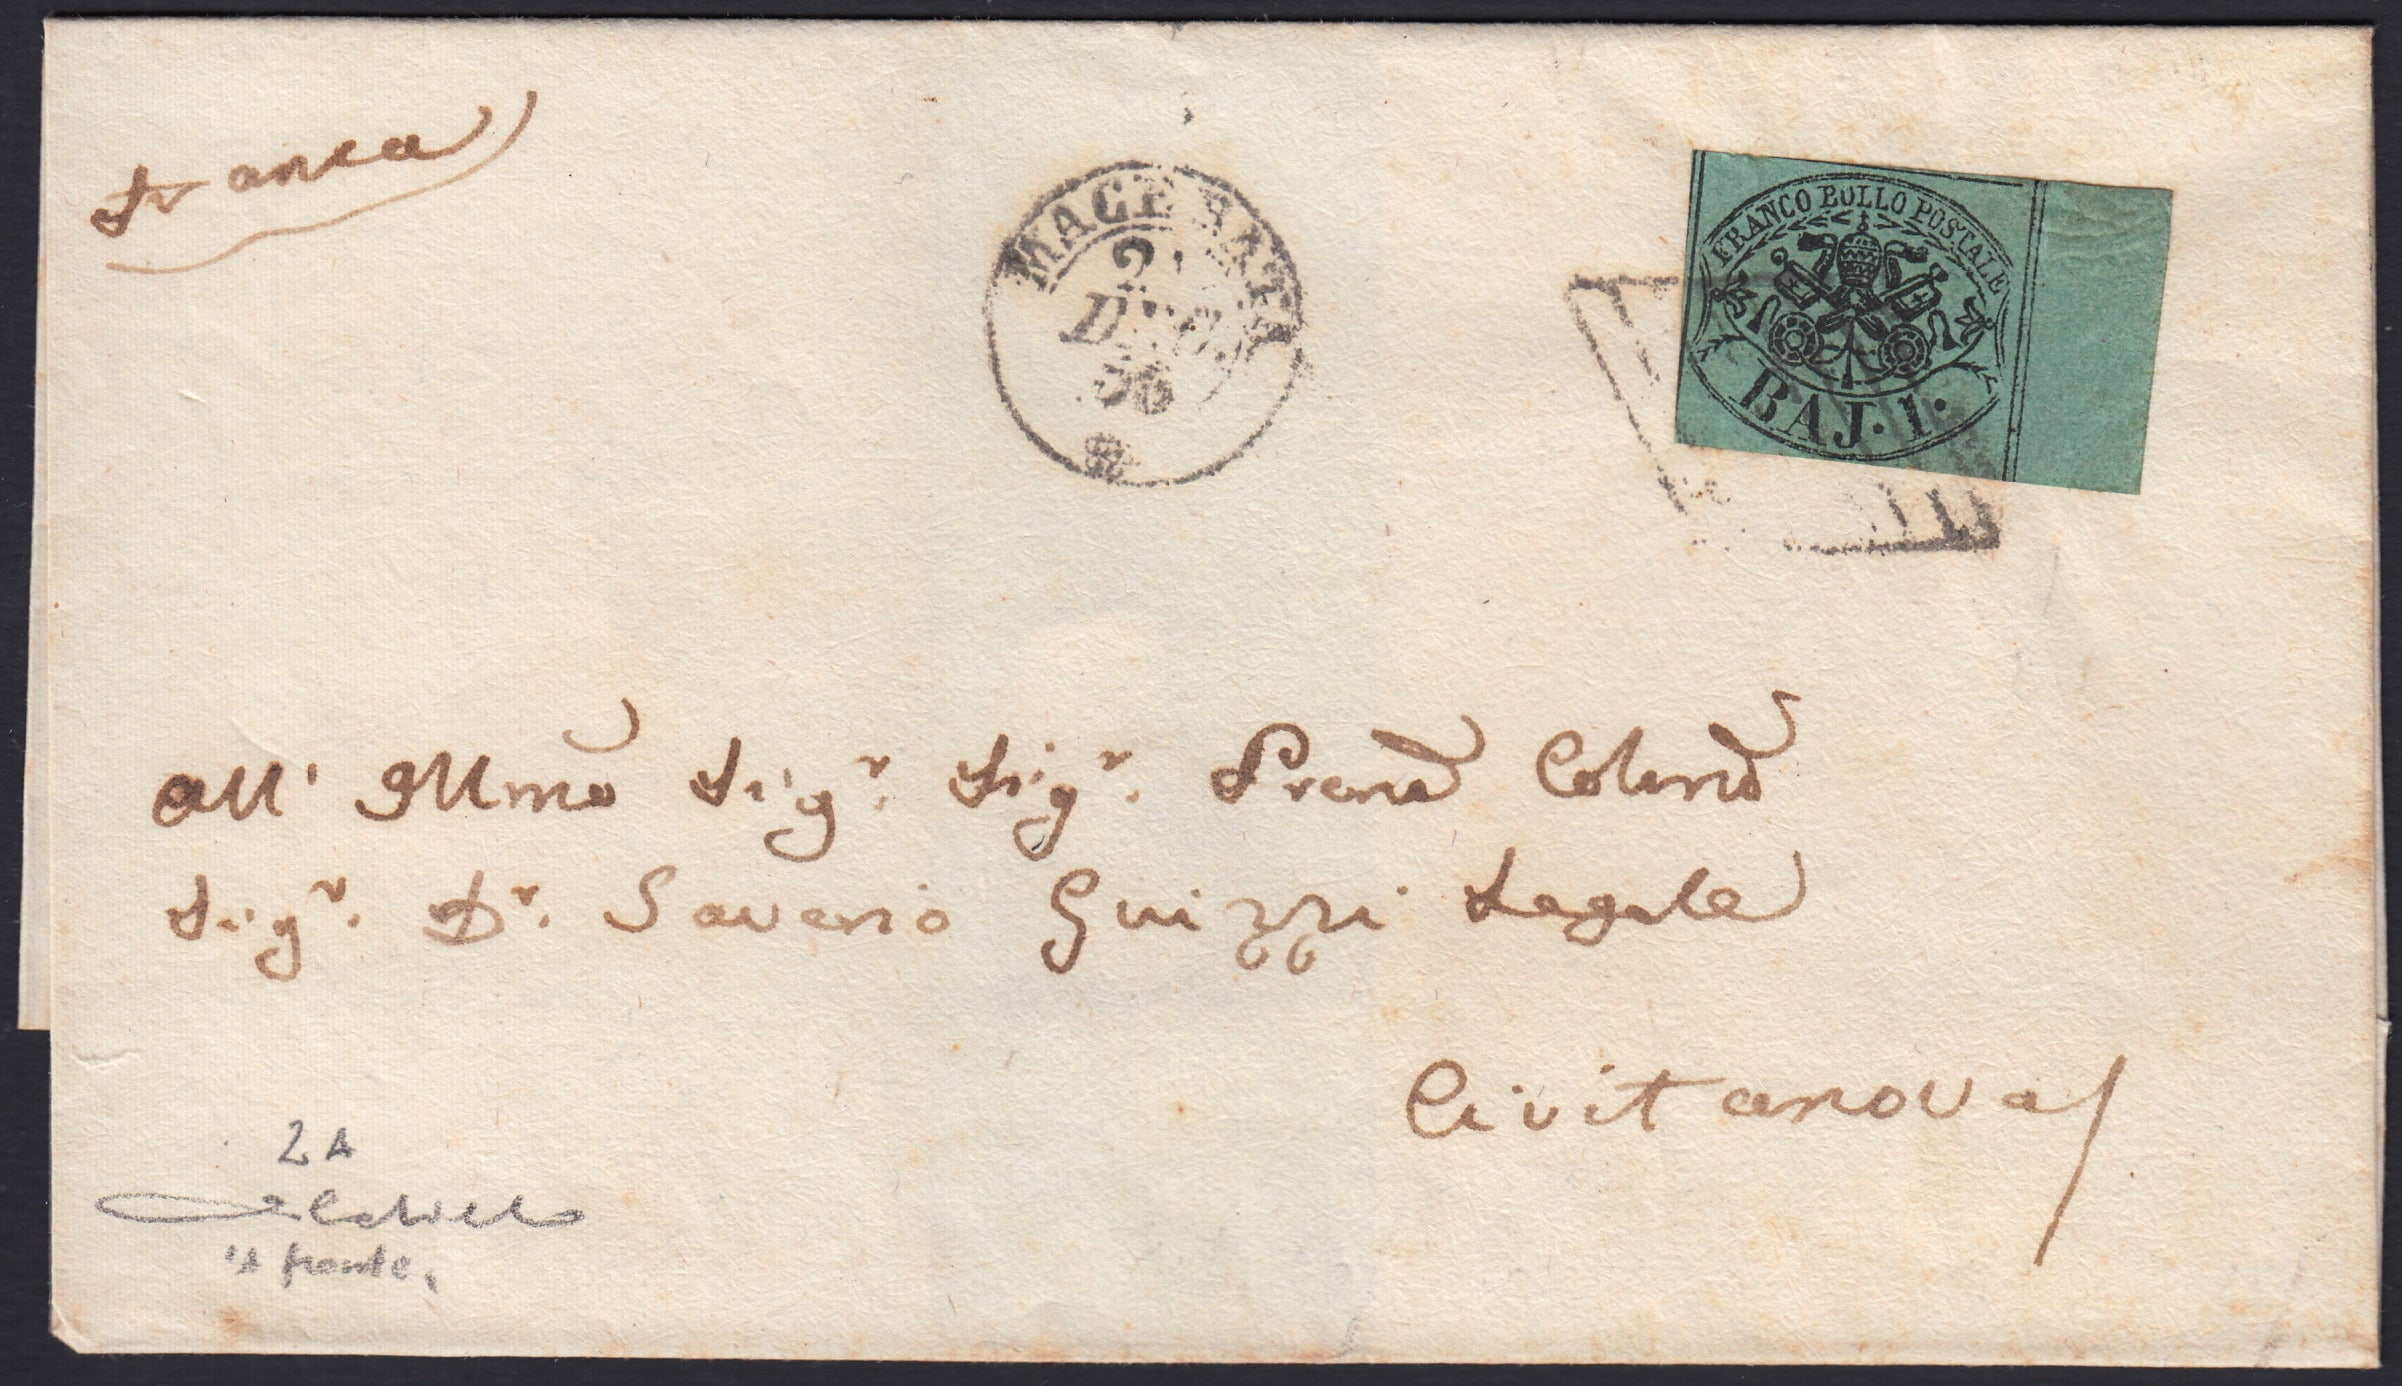 Franca
MACERATA
2
DIC.
56
FRANCO BOLLO POSTALE
BAJ. 1.
All' Illmo Sigr. Sigr. Prone Colmo
Sigr. Dr. Saverio Guizzi Legale
Civitanova
2A
A fronte